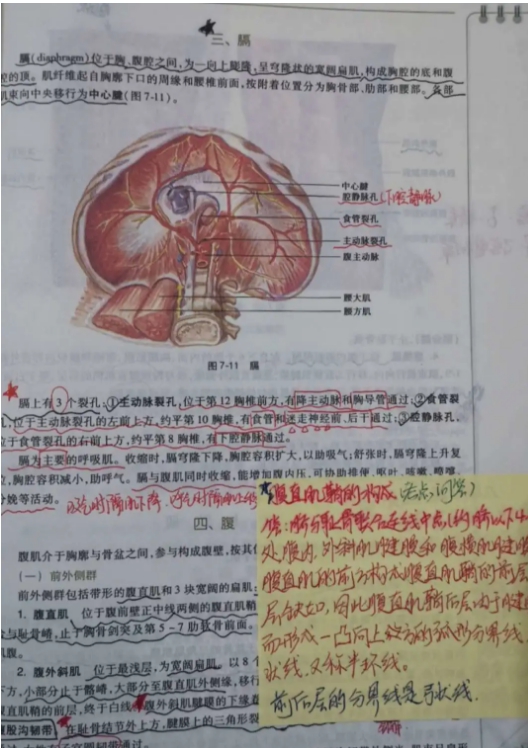 三、膈
膈(diaphragm)位于胸、腹腔之间,为一向上膨隆,呈穹隆状的宽阔扁肌,构成胸腔的底和腹
腔的顶。肌纤维起自胸廓下口的周缘和腰椎前面,按附着位置分为胸骨部、肋部和腰部。各部
肌束向中央移行为中心腱(图7-11)。
中心腱
腔静脉孔(下腔静脉)
食管裂孔
主动脉裂孔
腹主动脉
腰大肌
腰方肌
图7-11 膈
膈上有3个裂孔:①主动脉裂孔,位于第12胸椎前方,有降主动脉和胸导管通过;②食管裂
孔,位于主动脉裂孔的左前上方,约平第10胸椎,有食管和迷走神经前、后干通过;③腔静脉孔,
位于食管裂孔的右前上方,约平第8胸椎,有下腔静脉通过。
膈为主要的呼吸肌。收缩时,膈穹隆下降,胸腔容积扩大,以助吸气;舒张时,膈穹隆上升复
位,胸腔容积减小,助呼气。膈与腹肌同时收缩,能增加腹内压,可协助排便、呕吐、咳嗽、喷嚏、
分娩等活动。吸气时膈肌下降,呼气时膈肌上
四、腹
腹肌介于胸廓与骨盆之间,参与构成腹壁,按其
(一)前外侧群
前外侧群包括带形的腹直肌和3块宽阔的扁肌:
1. 腹直肌 位于腹前壁正中线两侧的腹直肌鞘
与耻骨嵴,止于胸骨剑突及第5~7肋软骨前面。
肌腹。
2. 腹外斜肌 位于最浅层,为宽阔扁肌,以8个
下方,小部分止于髂嵴,大部分至腹直肌外侧缘,移行
直肌鞘的前层,终于白线。腹外斜肌腱膜的下缘
腹股沟韧带。在耻骨结节外上方,腱膜上的三角形裂
腹直肌鞘的构成(考点问答)
答:脐与耻骨联合连线中点(约脐以下4
处腹内、外斜肌腱膜和腹横肌腱膜
腹直肌的前方构成腹直肌鞘的前层
层缺口,因此腹直肌鞘后层由于腱
而形成一凸向上方的弧形分界线
状线,又称半环线。
前后层的分界线是弓状线.